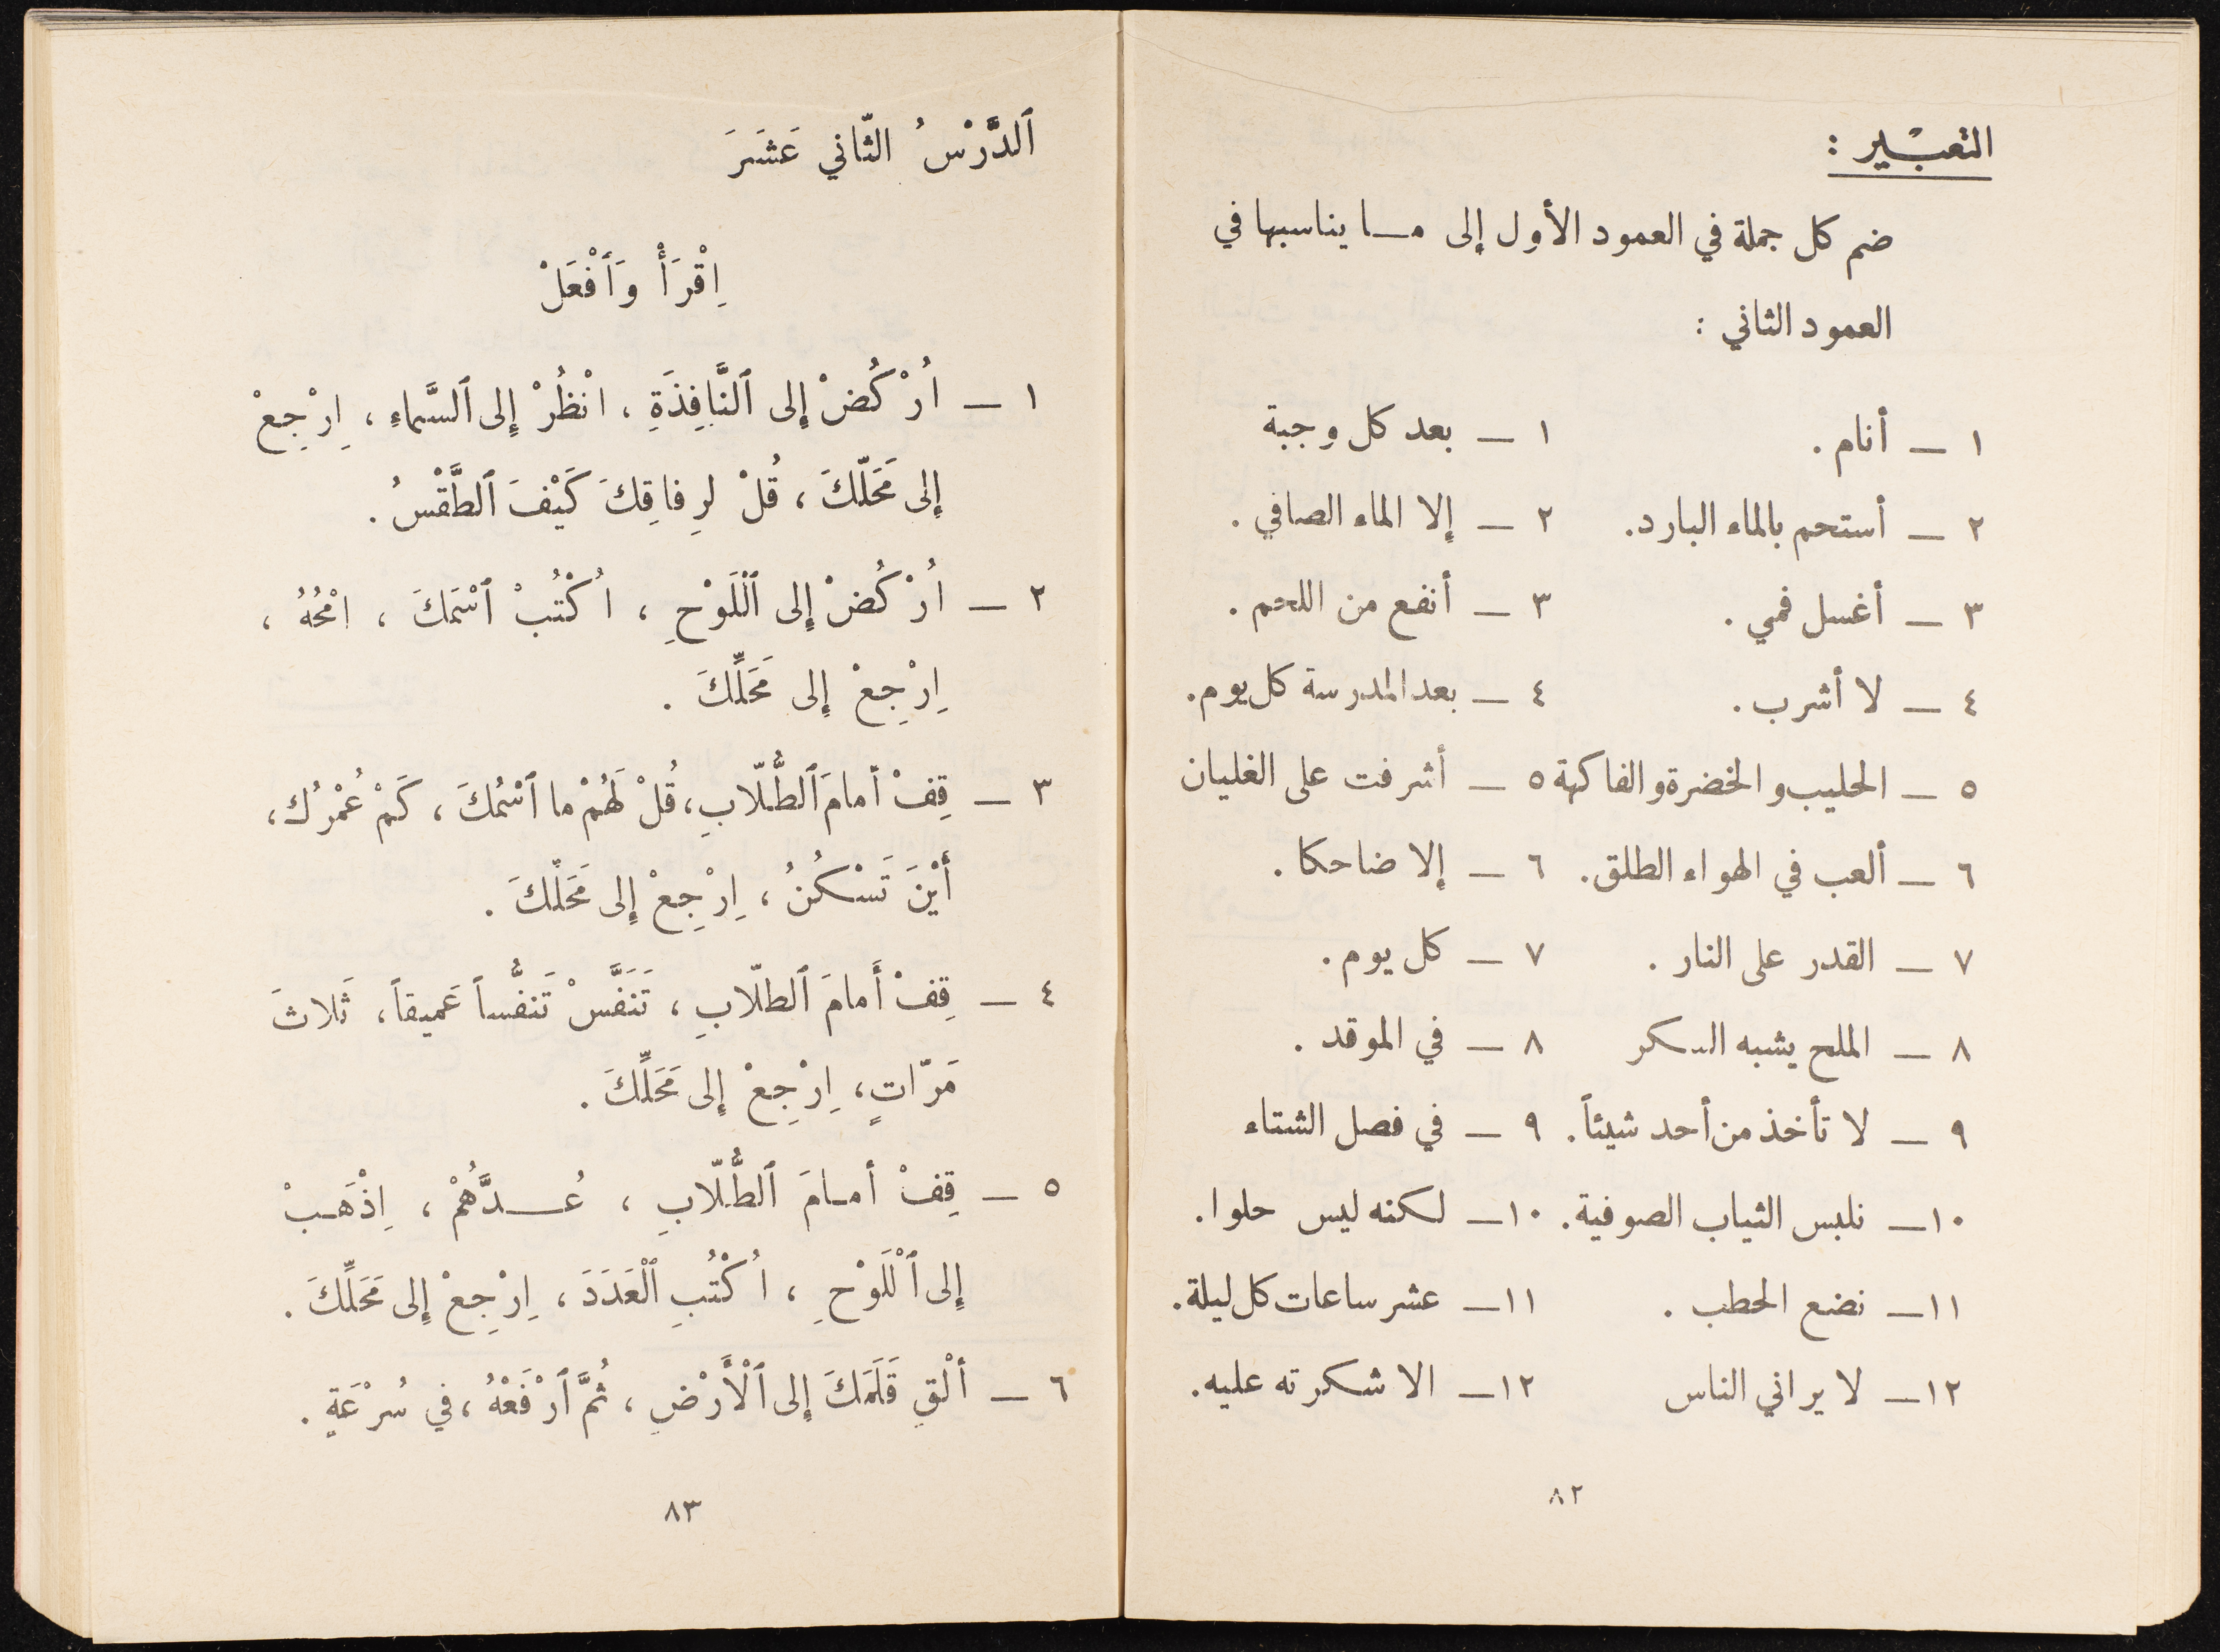 التعبْير :
ضم كل جملة في العمود الأول إلى مـا يناسبها في
العمود الثاني :
١ ـ أنام . ١ ـ بعد كل وجبة
٢ ـ أستحم بالماء البارد. ٢ ـ إلا الماء الصافي .
٣ ـ أغسل فمي . ٣ ـ أنفع من اللحم .
٤ ـ لا أشرب . ٤ ـ بعد المدرسة كل يوم.
٥ ـ الحليب والخضرة والفاكهة ٥ ـ أشرفت على الغليان
٦ ـ ألعب في الهواء الطلق. ٦ ـ إلا ضاحكا .
٧ ـ القدر على النار . ٧ ـ كل يوم .
٨ ـ الملح يشبه السكر ٨ ـ في الموقد .
٩ ـ لا تأخذ من أحد شيئاً. ٩ ـ في فصل الشتاء
١٠ـ نلبس الثياب الصوفية. ١٠ـ لكنه ليس حلوا.
١١ـ نضع الحطب . ١١ـ عشر ساعات كل ليلة.
١٢ـ لا يراني الناس ١٢ـ الا شكرته عليه.
٨٢
ٱلدَّرْسُ الثّاني عَشَرَ
اِقْرَأْ وَٱفْعَلْ
١ ـ اُرْكُضْ إِلى ٱلنَّافِذَةِ ، انْظُرْ إِلى ٱلسَّماءِ ، اِرْجِعْ
إِلى مَحَلّكَ ، قُلْ لِرِفاقِكَ كَيْفَ ٱلطَّقْسُ .
٢ ـ اُرْكُضْ إِلى ٱلْلَوْحِ ، اُكْتُبْ ٱسْمَكَ ، امْحُهُ ،
اِرْجِعْ إِلى مَحَلِّكَ .
٣ ـ قِفْ أمامَ ٱلطُّلّابِ، قُلْ لَهُمْ ما ٱسْمُكَ ، كَمْ عُمْرُك،
أَيْنَ تَسْكُنُ ، اِرْجِعْ إِلى مَحَلّكَ .
٤ ـ قِفْ أَمامَ ٱلطلّابِ ، تَنَفَّسْ تَنفُّساً عَميقاً، ثَلاثَ
مَرّاتٍ، اِرْجِعْ إِلى مَحَلِّكَ .
٥ ـ قِفْ أمـامَ ٱلطُّلّابِ ، عُـدَّهُمْ ، اِذْهَـبْ
إِلى ٱلْلَوْحِ ، اُكْتُبِ ٱلْعَدَدَ ، اِرْجِعْ إِلى مَحَلِّكَ .
٦ ـ أَلْقِ قَلَمَكَ إِلى ٱلْأَرْضِ ، ثُمَّ ٱرْفَعْهُ ، في سُرْعَةٍ .
٨٣